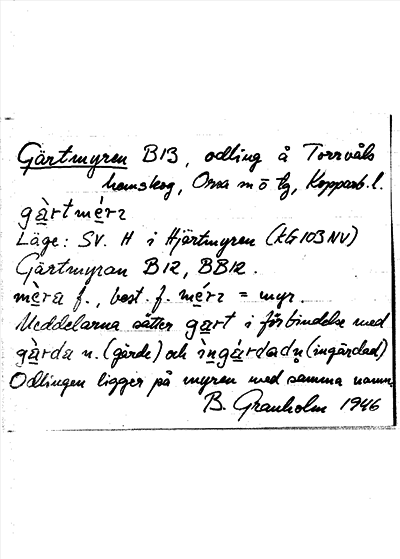 Gärtmyren B13, odling å Torrvåls
hemskog, Orsa m ö tg, Kopparb. l.
gàrt mérz
Läge: SV. H i Hjärtmyren (kG 103 NV)
Gärtmyran B12, BB12.
mèra f., best. f. mérz = myr.
Meddelarna sätter gart i förbindelse med
gàrda n. (gärde) och ìngárdadn (ingärdad)
Odlingen ligger på myren med samma namn.
B. Granholm 1946